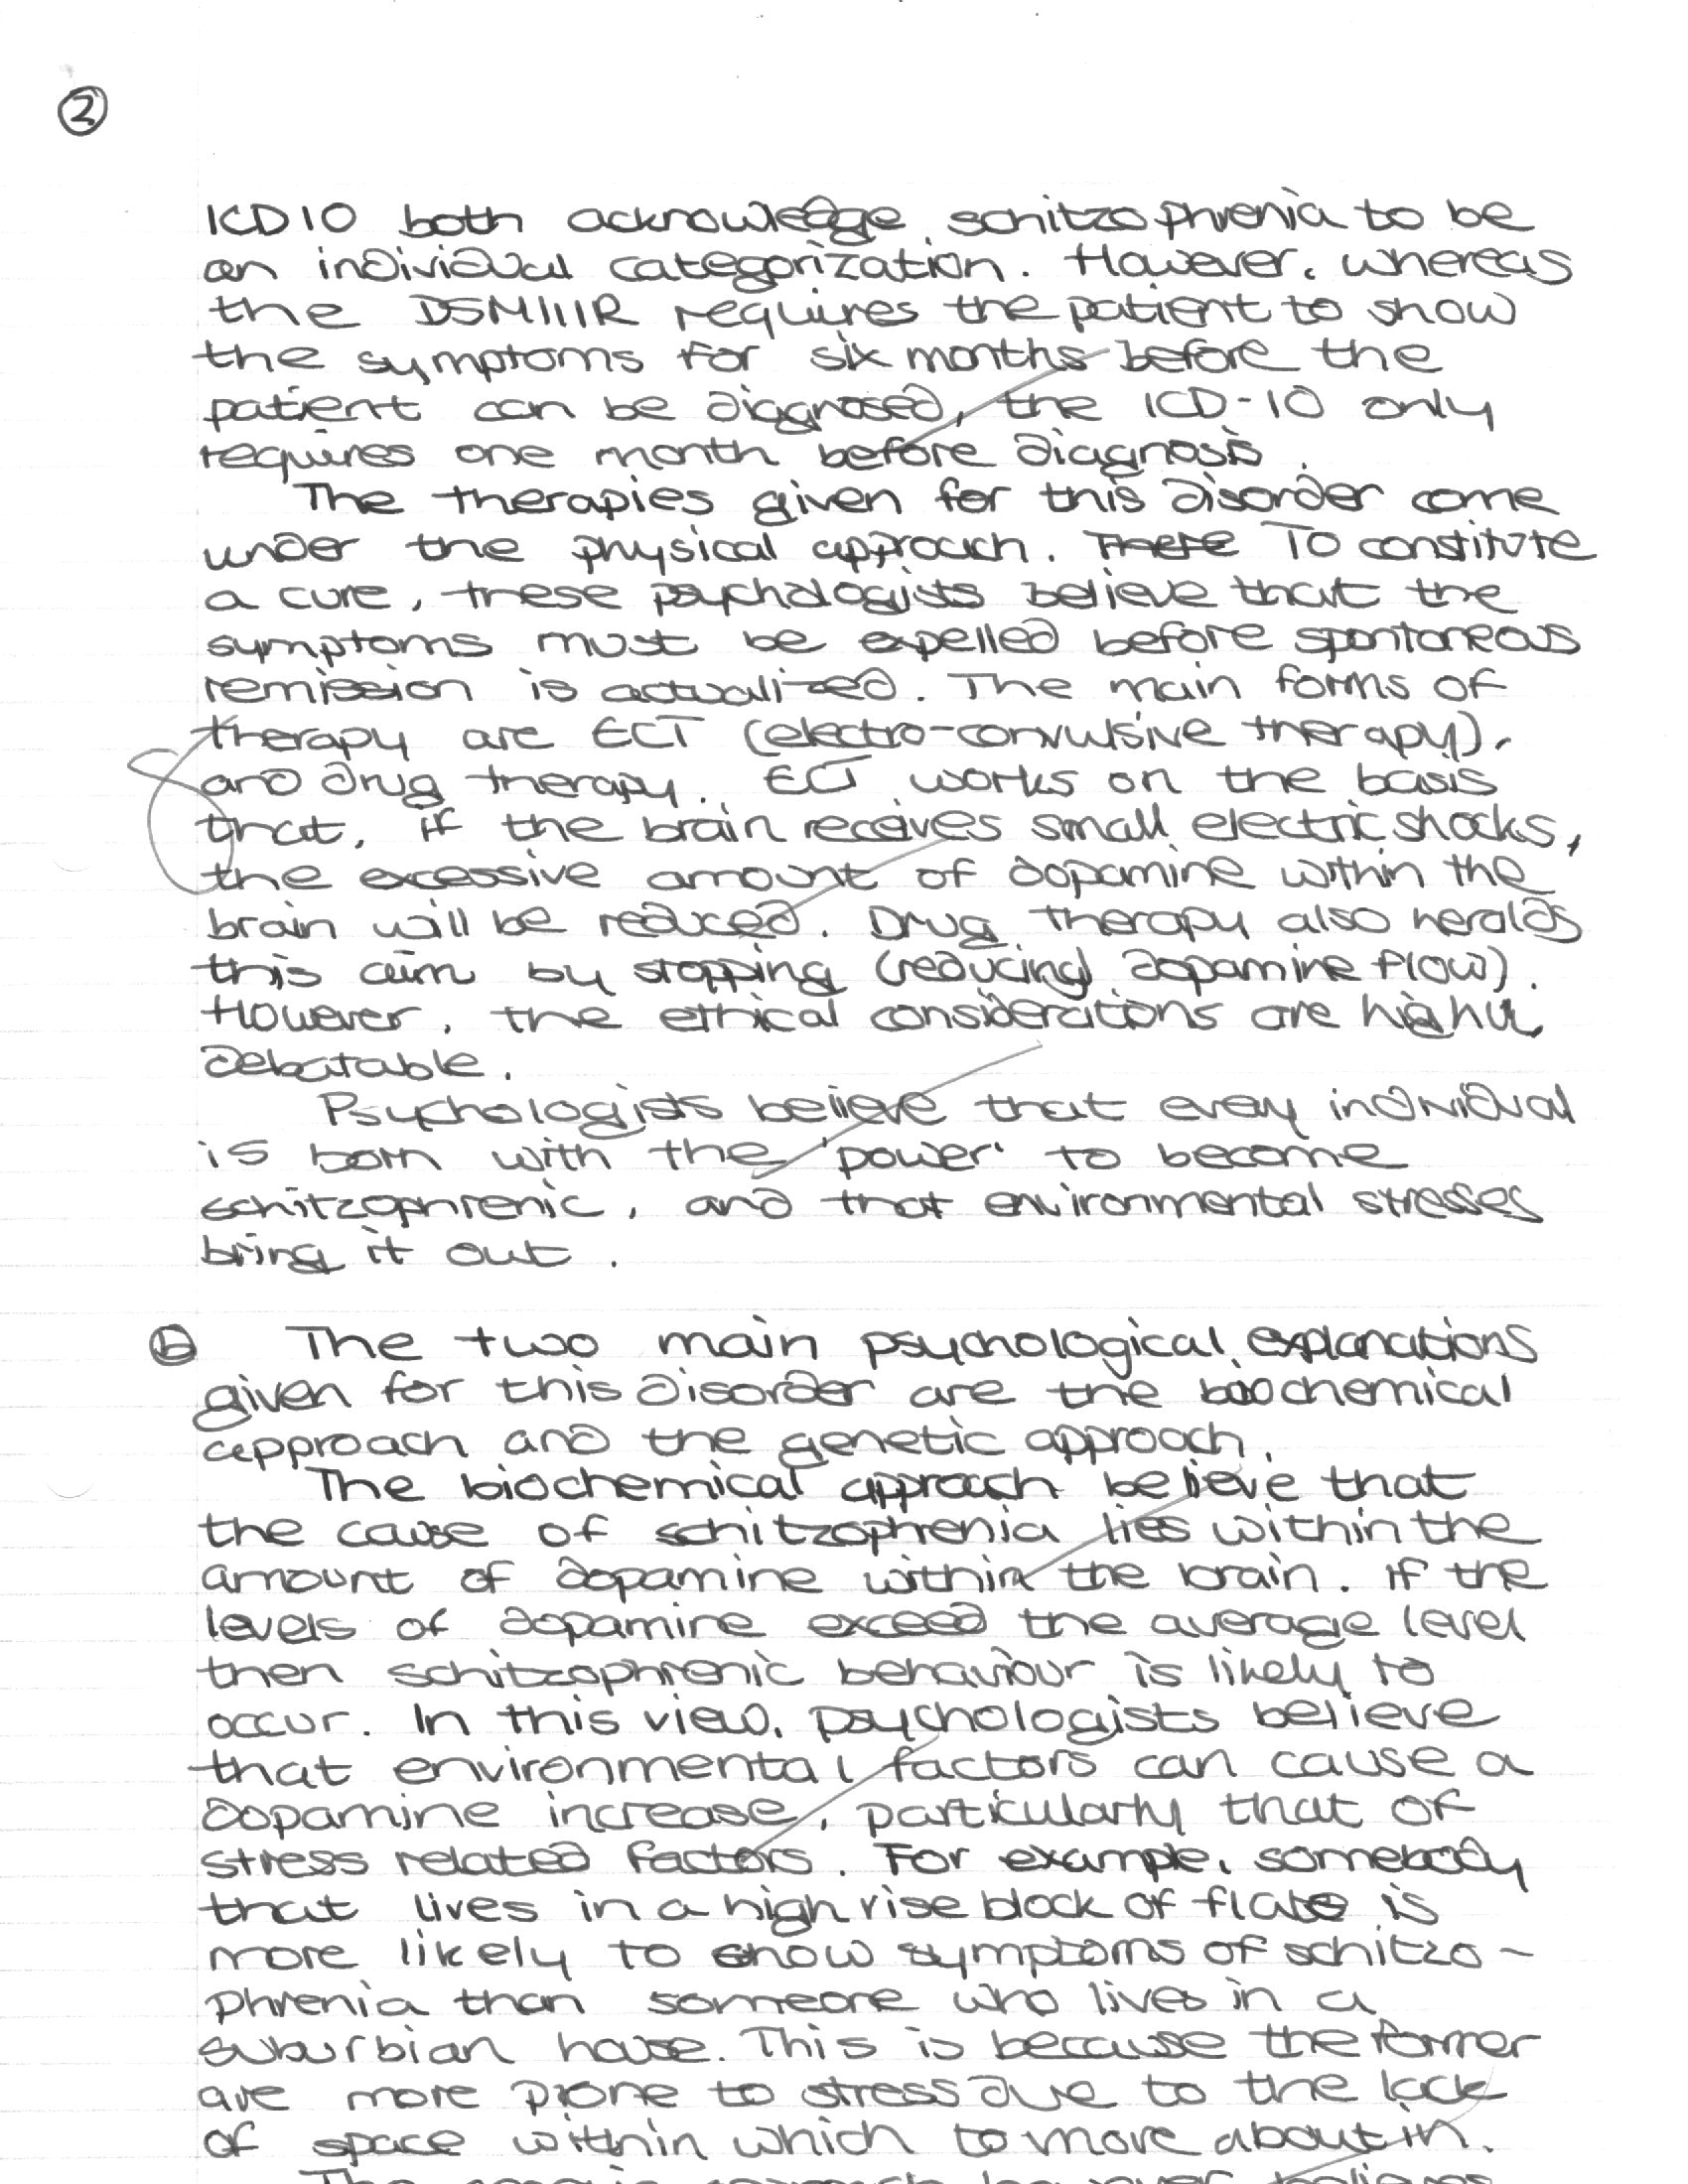 ②
ICD10 both acknowledge schitzophrenia to be
an individual categorization. However, whereas
the DSMIIIR requires the patient to show
the symptoms for six months before the
patient can be diagnosed, the ICD-10 only
requires one month before diagnosis.
The therapies given for this disorder come
under the physical approach. There To constitute
a cure, these psychologists believe that the
symptoms must be expelled before spontaneous
remission is actualized. The main forms of
therapy are ECT (electro-convulsive therapy),
and drug therapy. ECT works on the basis
that, if the brain receives small electric shocks,
the excessive amount of dopamine within the
brain will be reduced. Drug therapy also heralds
this aim by stopping (reducing) dopamine flow).
However, the ethical considerations are highly
debatable.
Psychologists believe that every individual
is born with the 'power' to become
schitzophrenic, and that environmental stresses
bring it out.
ⓑ The two main psychological explanations
given for this disorder are the biochemical
approach and the genetic approach.
The biochemical approach believe that
the cause of schitzophrenia lies within the
amount of dopamine within the brain. If the
levels of dopamine exceed the average level
then schitzophrenic behaviour is likely to
occur. In this view, psychologists believe
that environmental factors can cause a
dopamine increase, particularly that of
stress related factors. For example, somebody
that lives in a high rise block of flats is
more likely to show symptoms of schitzo-
phrenia than someone who lives in a
suburbian house. This is because the former
are more prone to stress due to the lack
of space within which to move about in.